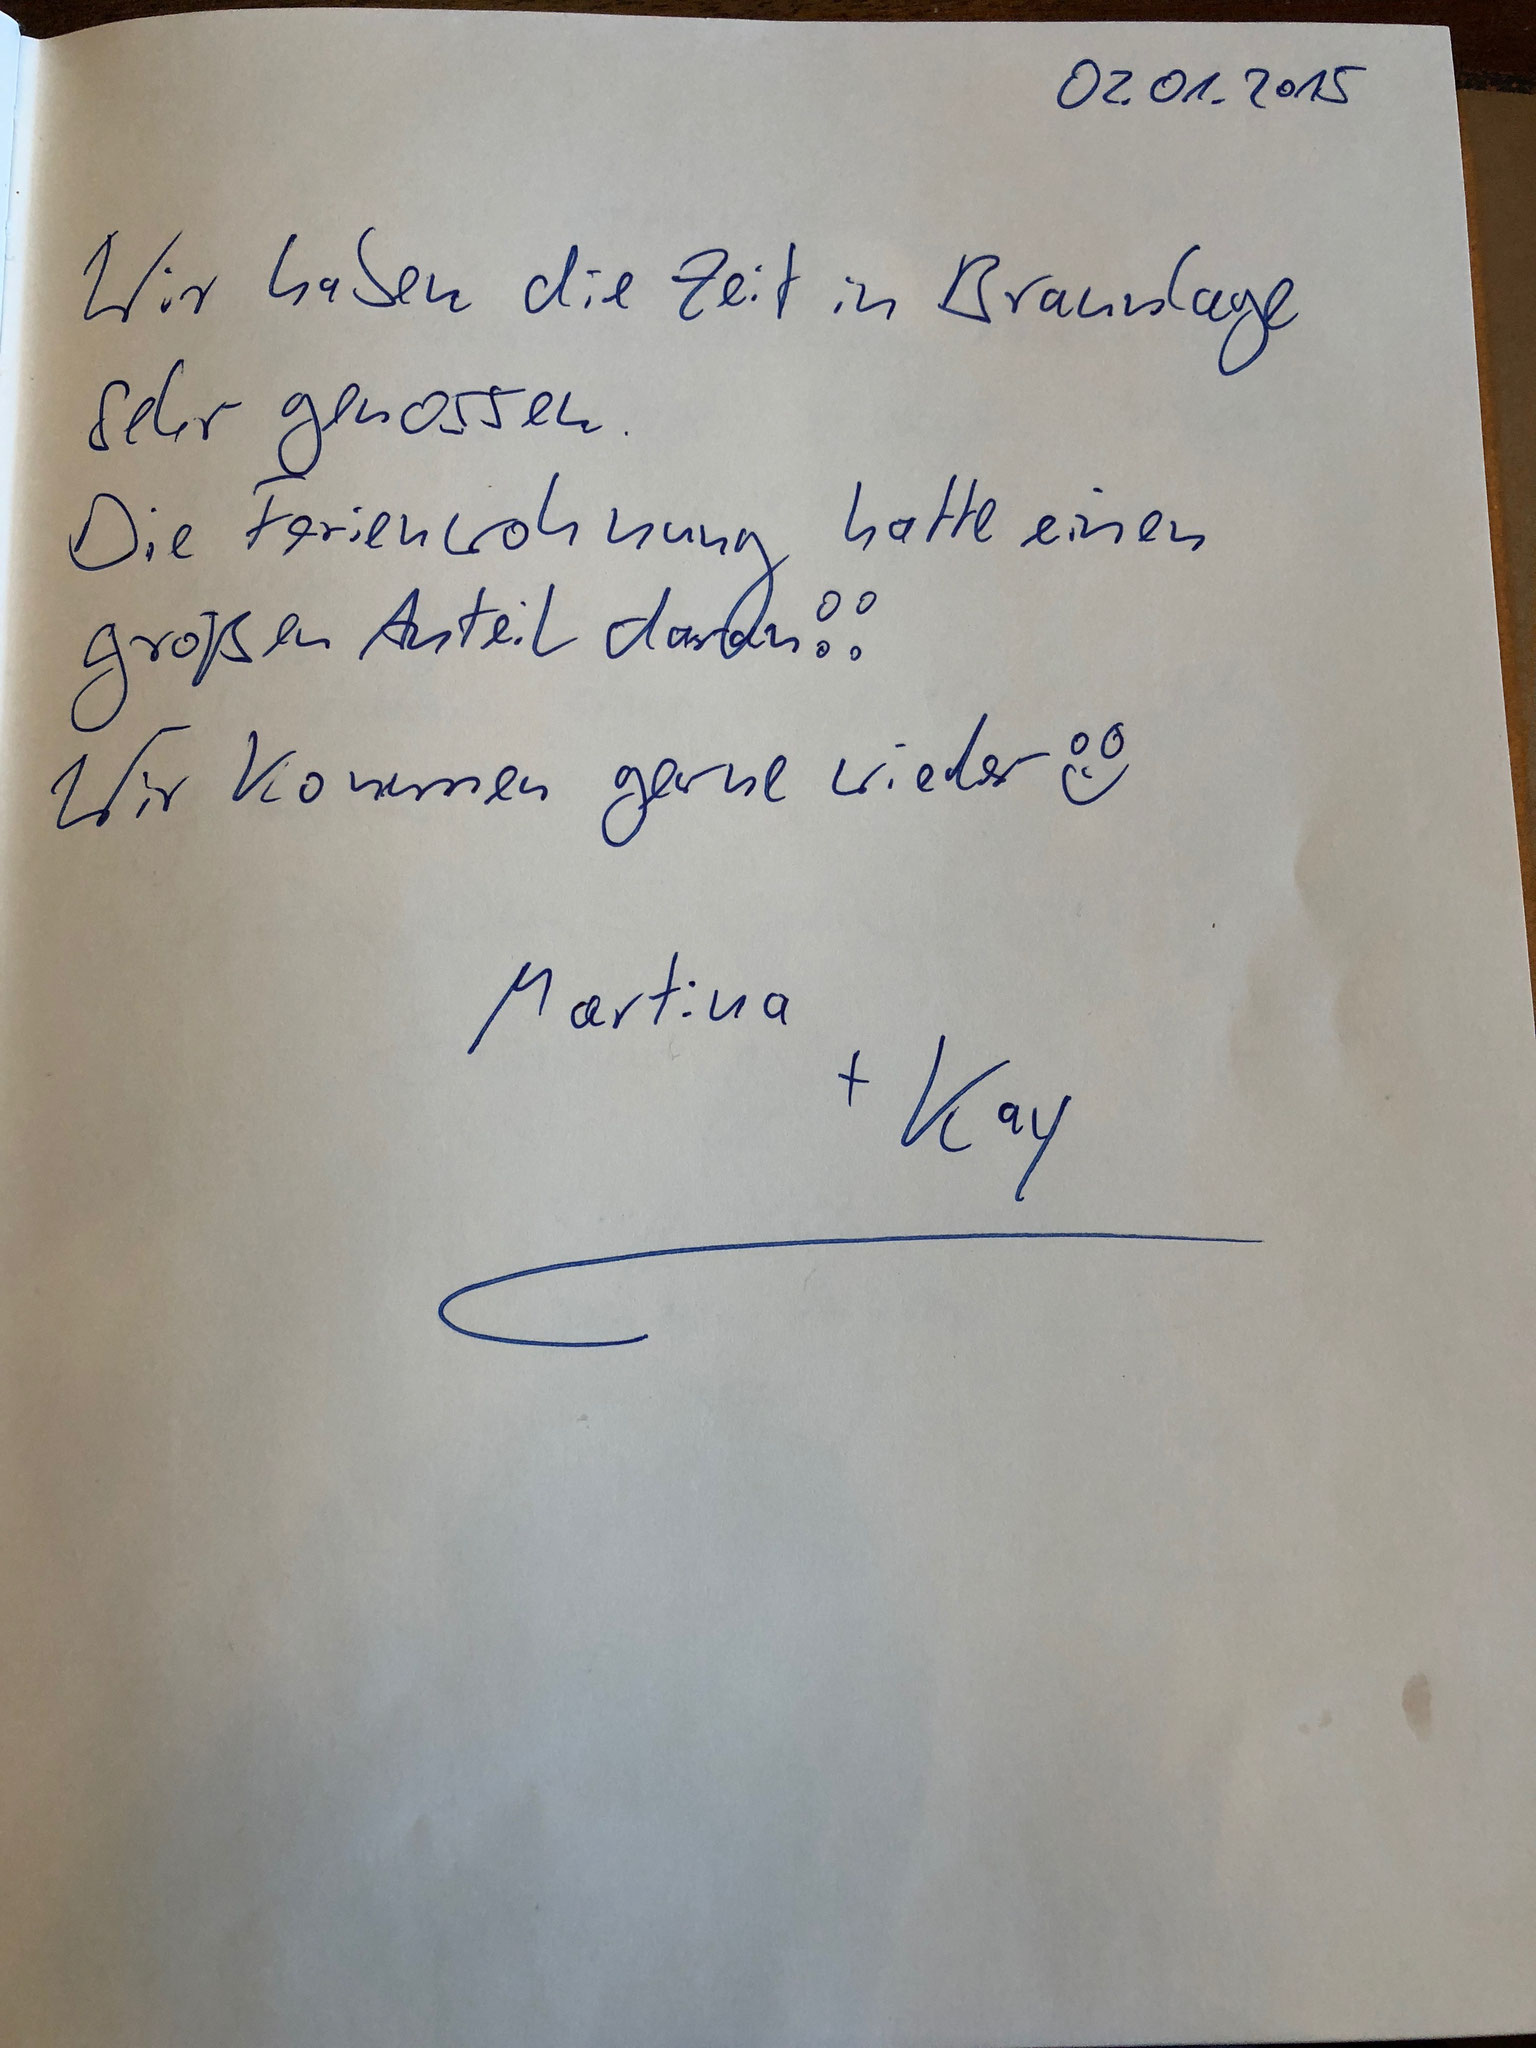 02.01.2015
Wir haben die Zeit in Braunlage
sehr genossen.
Die Ferienwohnung hatte einen
großen Anteil daran!!
Wir kommen gerne wieder
Martina
+ Kay